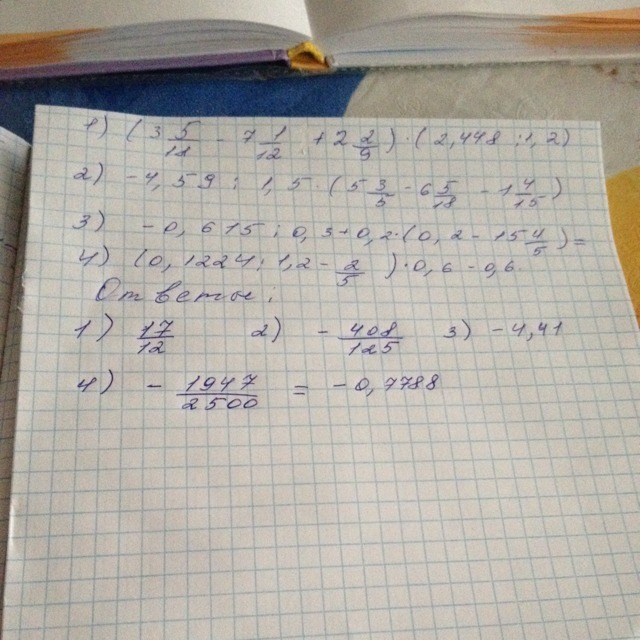 1) (3 5/18 - 7 1/12 + 2 2/9) · (2,448 : 1,2)
2) -4,59 : 1,5 · (5 3/5 - 6 5/18 - 1 4/15)
3) -0,615 : 0,3 + 0,2 · (0,2 - 15 4/5) =
4) (0,1224 : 1,2 - 2/5) · 0,6 - 0,6.
Ответы:
1) 17/12 2) - 408/125 3) -4,41
4) - 1947/2500 = -0,7788